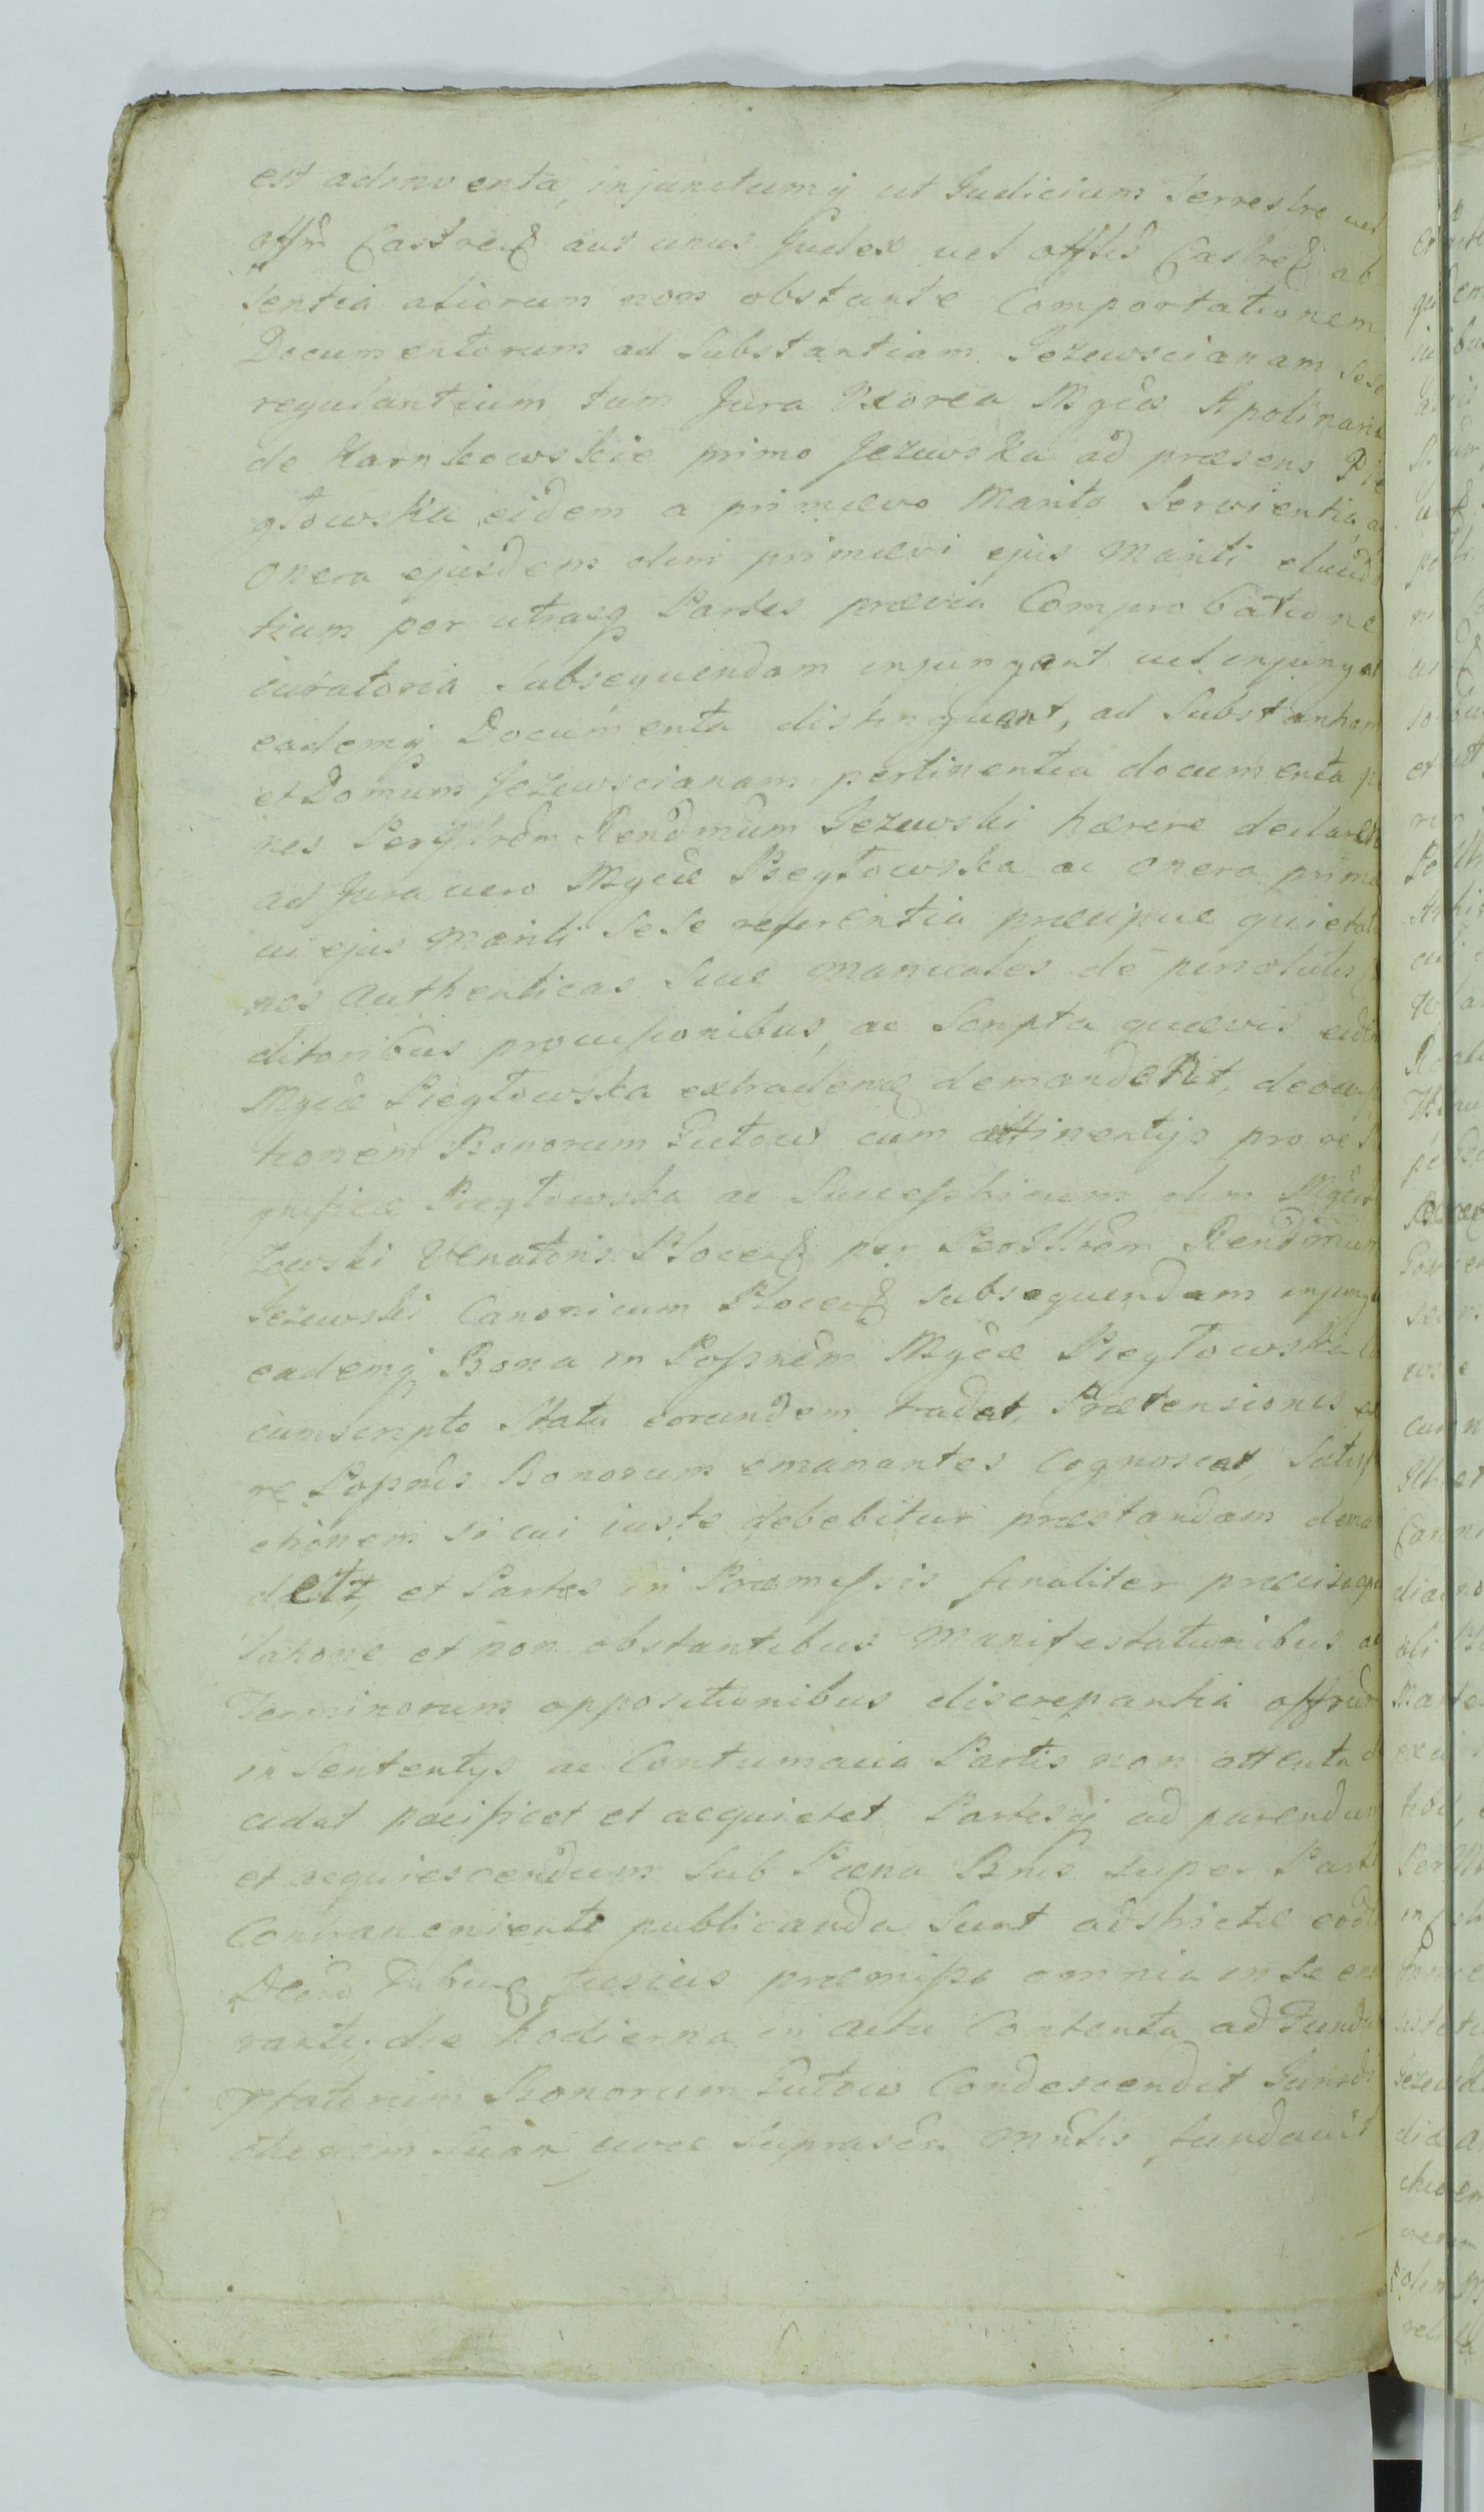 est adinventa, injunctumq ut Judicium Terrestre vel
offm Castren aut unus Judex vel offlis Castren ab
sentia aliorum non obstante Comportationem
Documentorum ad Substantiam Jezewscianam sese
regulantium tum Jura Uxorea Mgcæ Apolinaris
de Karnkowskie primo Jezewska ad præsens Pie
głowska eidem a primævo Marito Servientia, a
Onera ejusdem olim primævi ejus Mariti
tium per utrasq Partes prævia Comprobatione
iuratoria subsequendam injungant vel injungat
eademq Documenta distinguant, ad Substantiam
et Domum Jezewscianam pertinentia documenta pe
nes Perillrem Rendmum Jezewski hærere declaret
ad Jura vero Mgcæ Piegłowska ac Onera primæ
vi ejus Mariti sese referentia præcipue quietatio
nes Authenticas Sive Manuales de persolutis
ditoribus provisionibus, ac Scripta quævis eidm
Mgcæ Piegłowska extradenda demandet,
tionem Bonorum Gutow cum attinentijs pro re
gnificæ Piegłowska ac Successricum olim Mgci
zewski Venatoris Plocen per Perillrem Rendmum
Jezewski Canonicum Plocen subsequendam injung
eademq Bona in Possnem Mgcæ Piegłowska
cumscripto Statu eorundem tradat, Prætensiones ex
re Possnis Bonorum emanantes Cognoscat, Satisfa
ctionem si cui iuste debebitur præstandam deman
det, et Partes in Præmissis finaliter
latione et non obstantibus Manifestationibus ac
Terminorum oppositionibus discrepantia
in Sententijs ac Contumacia Partis non attenta de
cidat pacificet et acquietet Partesq ad parendum
et acquiescendum sub Pæna Bnis super Parte
Contraveniente publicanda sunt adstrictæ eodm
Decro fusius præmissa omnia in se
rante, die hodierna in actu Contenta ad Fundum
Bonorum Gutow Condescendit Jurisdi
ctionem suam suprascr fundavit